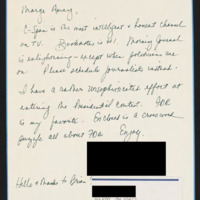 C-Span is the most intelligent & honest channel
on TV. Booknotes is #1. Morning Journal
is enlightening - except when politicians are
on. Please schedule journalists instead.
I have a rather unsophisticated effort at
entering the Presidential Contest. FDR
is my favorite. Enclosed is a crossword
puzzle all about FDR Enjoy.
Hello & thanks to Brian